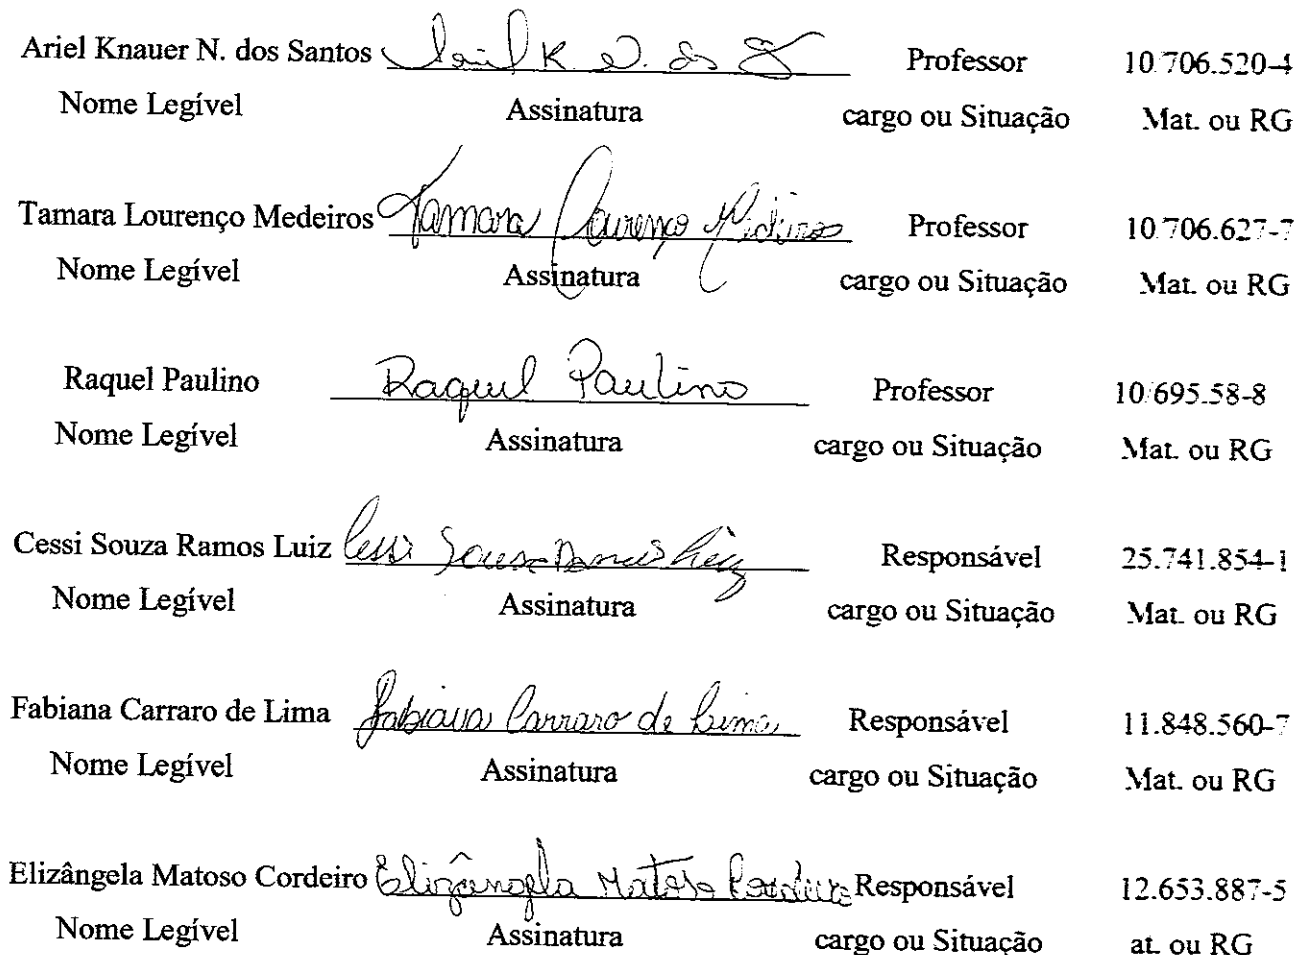 Ariel Knauer N. dos Santos Ariel K. N. dos S Professor 10.706.520-4
Nome Legível Assinatura cargo ou Situação Mat. ou RG
Tamara Lourenço Medeiros Tamara Lourenço Medeiros Professor 10.706.627-7
Nome Legível Assinatura cargo ou Situação Mat. ou RG
Raquel Paulino Raquel Paulino Professor 10.695.58-8
Nome Legível Assinatura cargo ou Situação Mat. ou RG
Cessi Souza Ramos Luiz Cessi Souza Ramos Luiz Responsável 25.741.854-1
Nome Legível Assinatura cargo ou Situação Mat. ou RG
Fabiana Carraro de Lima Fabiana Carraro de Lima Responsável 11.848.560-7
Nome Legível Assinatura cargo ou Situação Mat. ou RG
Elizângela Matoso Cordeiro Elizângela Matoso Cordeiro Responsável 12.653.887-5
Nome Legível Assinatura cargo ou Situação at. ou RG